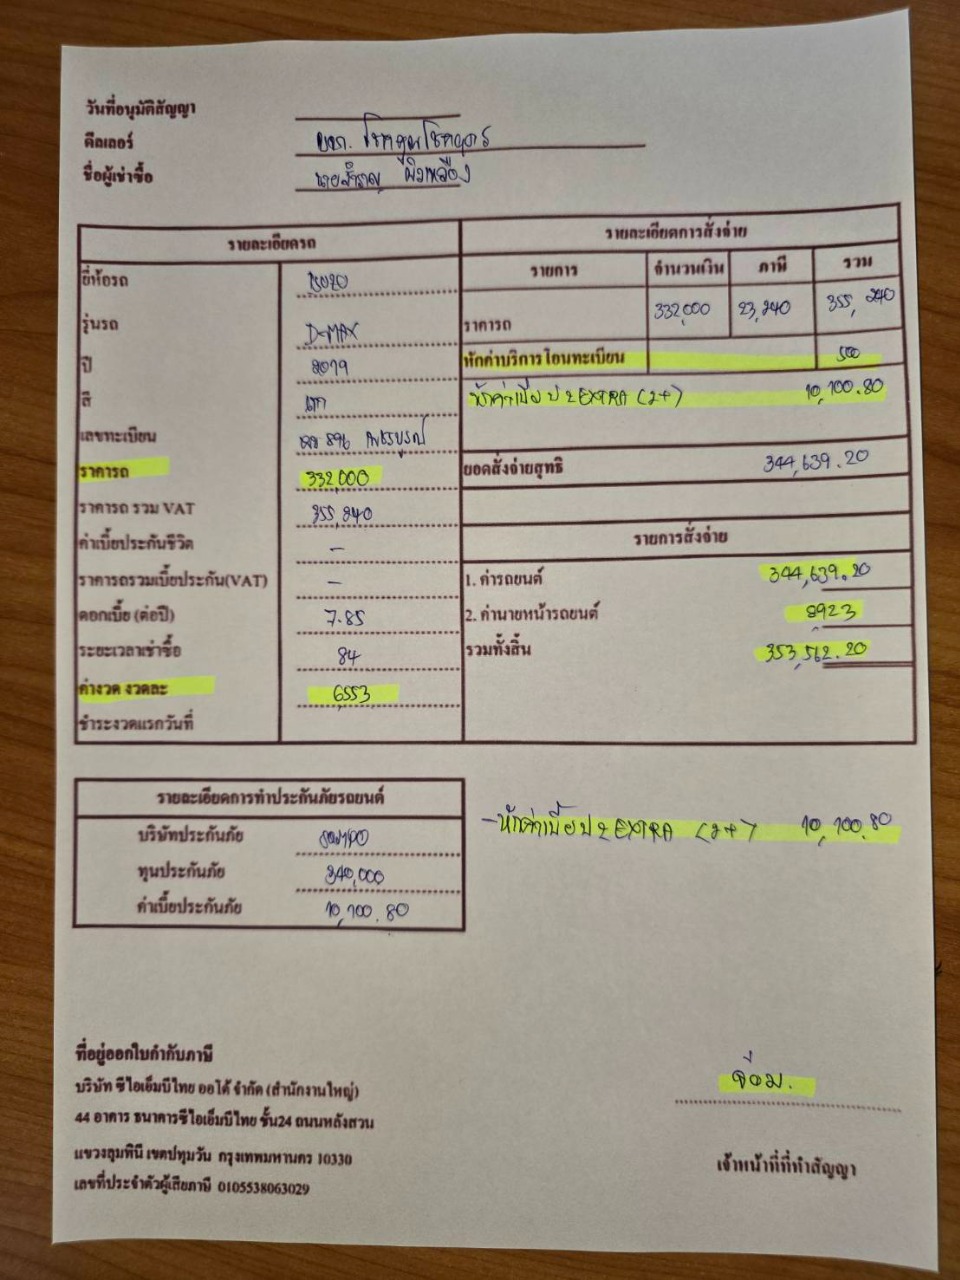 วันที่อนุมัติสัญญา
ดีลเลอร์ บจก. โชคคูณโชค
ชื่อผู้เช่าซื้อ นายสำราญ ผิวเหลือง
รายละเอียดรถ
ยี่ห้อรถ ISUZU
รุ่นรถ D-MAX
ปี 2019
สี เทา
เลขทะเบียน 896 เพชรบูรณ์
ราคารถ 332,000
ราคารถ รวม VAT 355,240
ค่าเบี้ยประกันชีวิต -
ราคารถรวมเบี้ยประกัน(VAT) -
ดอกเบี้ย (ต่อปี) 7.85
ระยะเวลาเช่าซื้อ 84
ค่างวด งวดละ 6553
ชำระงวดแรกวันที่
รายละเอียดการสั่งจ่าย
รายการ จำนวนเงิน ภาษี รวม
ราคารถ 332,000 23,240 355,240
หักค่าบริการโอนทะเบียน 500
หักค่าเบี้ย ป 2 EXTRA (2+) 10,100.80
ยอดสั่งจ่ายสุทธิ 344,639.20
รายการสั่งจ่าย
1. ค่ารถยนต์ 344,639.20
2. ค่านายหน้ารถยนต์ 8,923
รวมทั้งสิ้น 353,562.20
รายละเอียดการทำประกันภัยรถยนต์
บริษัทประกันภัย SOMPO
ทุนประกันภัย 340,000
ค่าเบี้ยประกันภัย 10,100.80
- หักค่าเบี้ย ป 2 EXTRA (2+) 10,100.80
ที่อยู่ออกใบกำกับภาษี
บริษัท ซีไอเอ็มบีไทย ออโต้ จำกัด (สำนักงานใหญ่)
44 อาคาร ธนาคารซีไอเอ็มบีไทย ชั้น24 ถนนหลังสวน
แขวงลุมพินี เขตปทุมวัน กรุงเทพมหานคร 10330
เลขที่ประจำตัวผู้เสียภาษี 0105538063029
จ๋อม.
เจ้าหน้าที่ที่ทำสัญญา